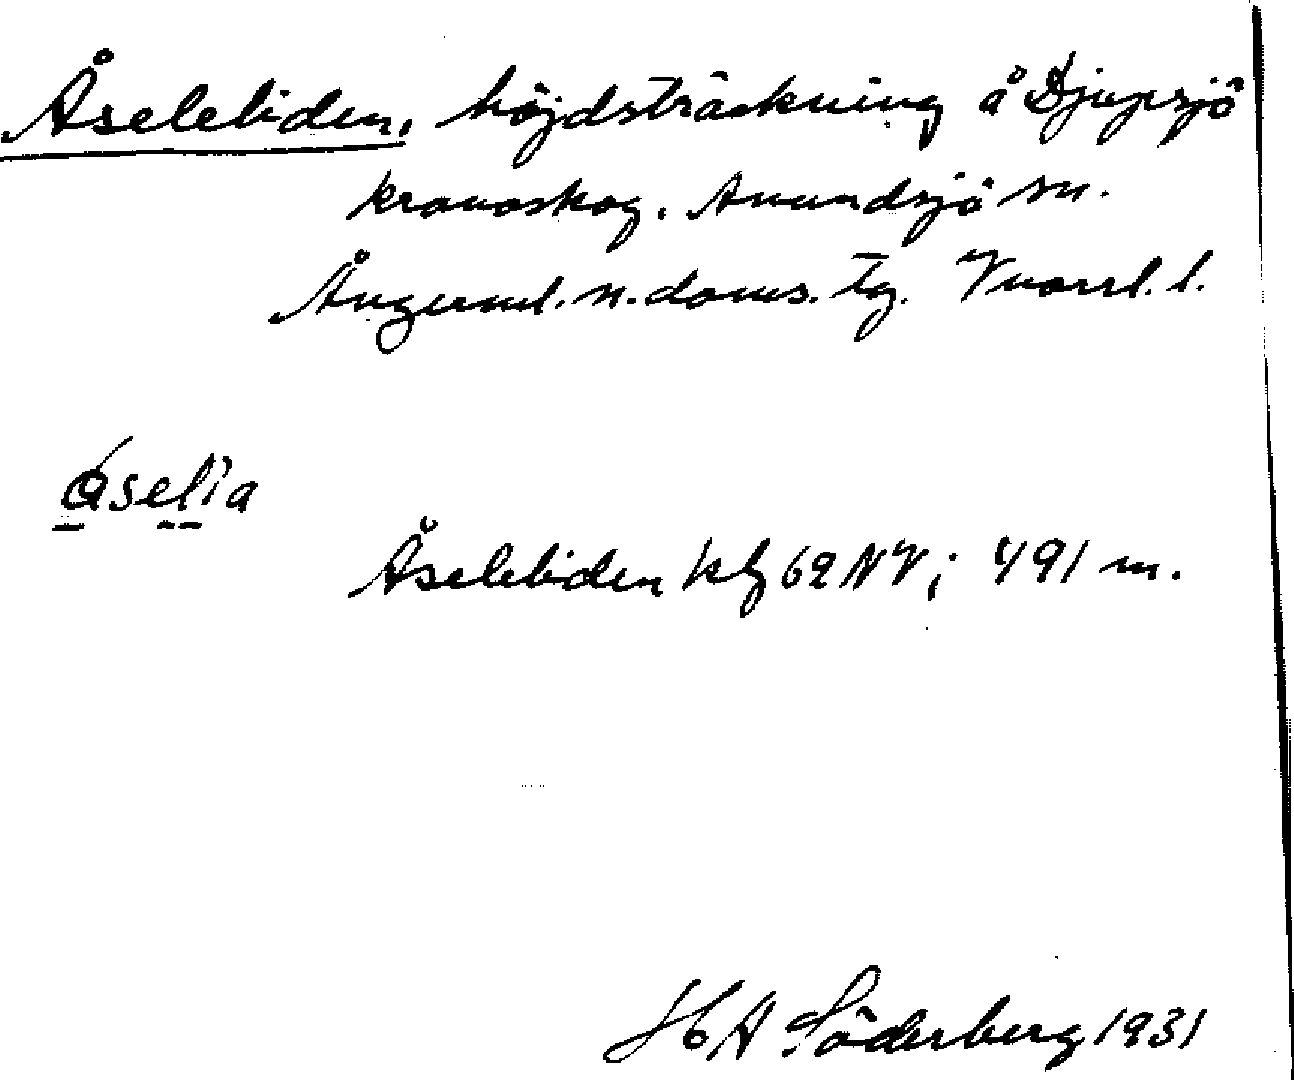 Åseleliden, höjdsträckning å Djupsjö
kronoskog. Anundsjö sn.
Ångerml. n. doms. tg. Vnorrl. l.
åselia
Åseleliden kbl 62 NV; 491 m.
H A Söderberg 1931